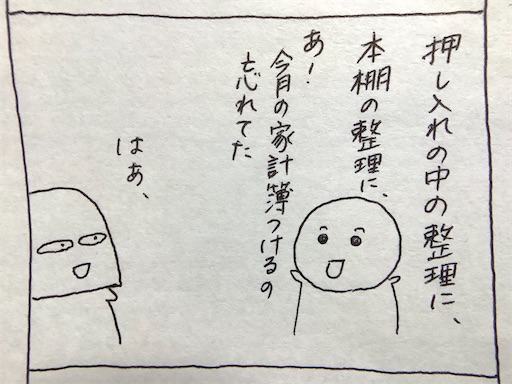 押し入れの中の整理に、
本棚の整理に、
あ!
今月の家計簿つけるの
忘れてた
はあ、